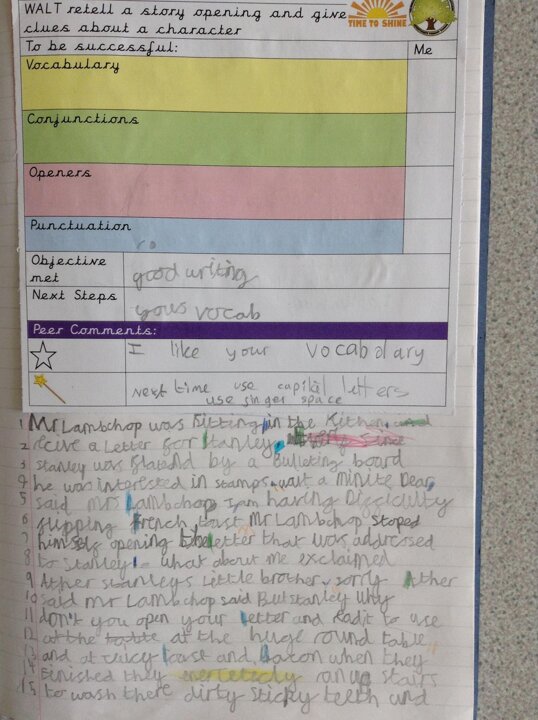 WALT retell a story opening and give
clues about a character
TIME TO SHINE
To be successful:
Me
Vocabulary
Conjunctions
Openers
Punctuation
Objective
met
good writing
Next Steps
yous vocab
Peer Comments:
I like your vocabalary
Next time use capital letters
use singer space
1 Mr Lambchop was sitting in the Kithen and
2 a Letter for Stanley Since
3 stanley was by a Bulleting board
4 he was interested in stamps wait a minite Dear
5 said mrs Lambchop I am having Difficulty
6 French toast Mr Lambchop stoped
7 himself opening the letter that was addressed
8 to Stanley what about me exclaimed
9 Ather stanleys Little brother sorry Ather
10 said mr Lambchop said But stanley why
11 don't you open your Letter and Read it to use
12 at the at the huge round table
13 and at juicy toast and bacon when they
14 Finished they ran up stairs
15 to wash there dirty Sticky teeth and